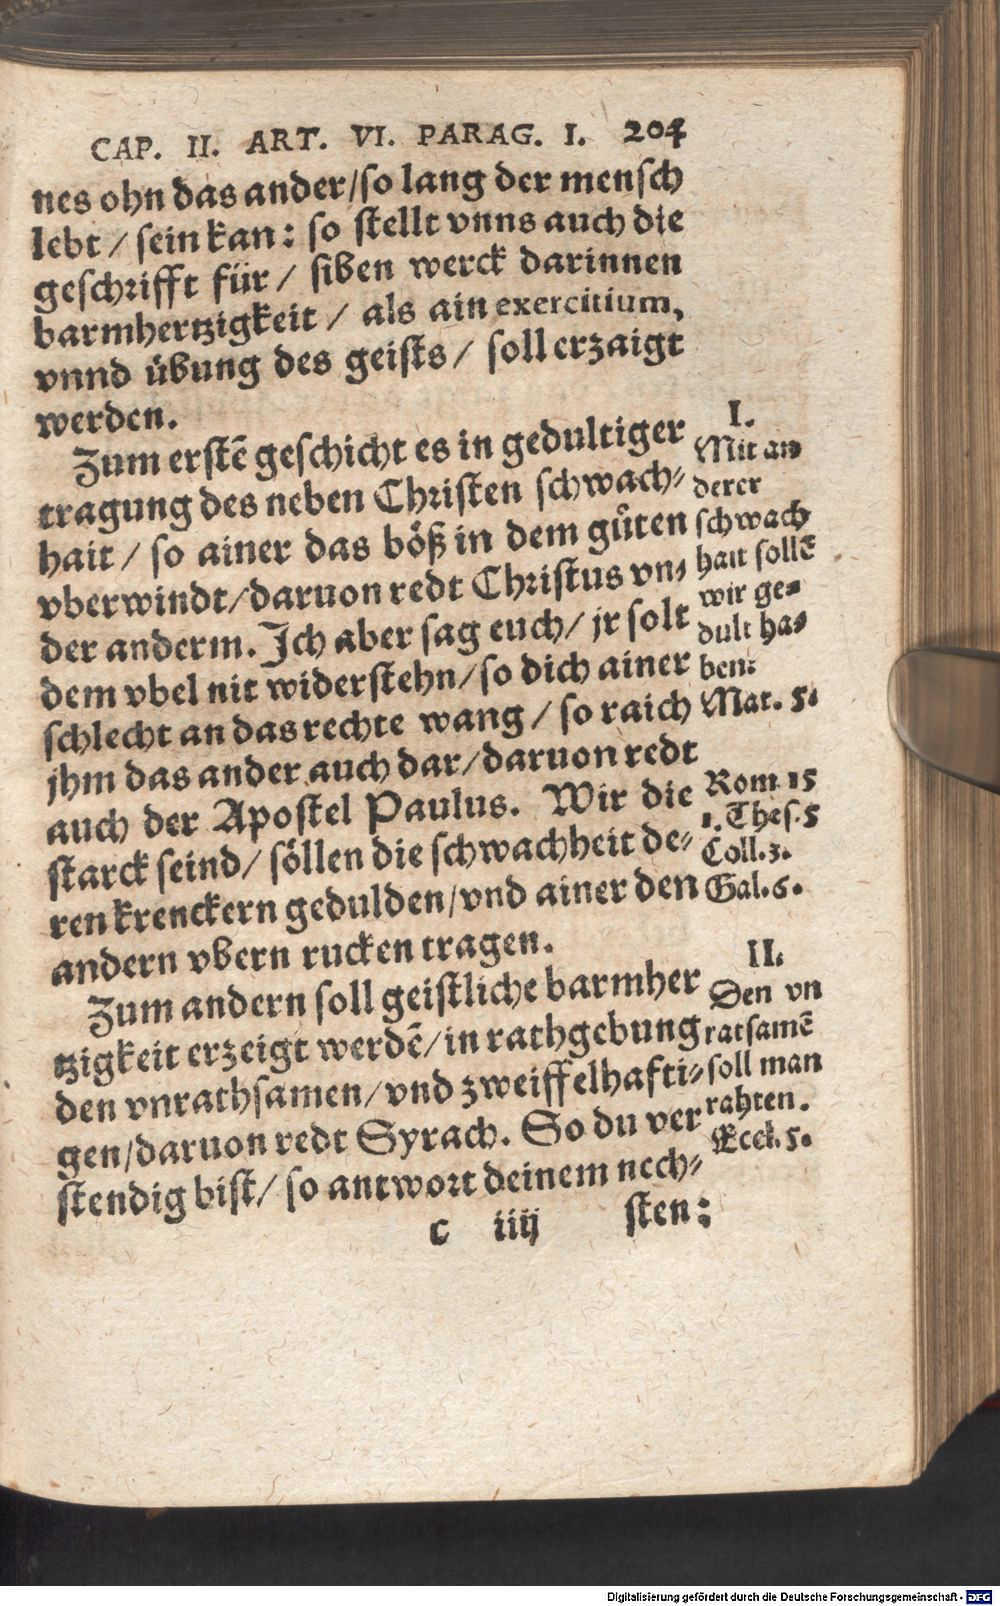 CAP. II. ART. VI. PARAG. I. 204
nes ohn das ander/so lang der mensch
lebt / sein kan: so stellt vnns auch die
geschrifft für / siben werck darinnen
barmhertzigkeit / als ain exercitium,
vnnd übung des geists / soll erzaigt
werden.
Zum erstē geschicht es in gedultiger
tragung des neben Christen schwach-
hait / so ainer das böß in dem gůten
vberwindt/daruon redt Christus vn-
der anderm. Ich aber sag euch/ jr solt
dem vbel nit widerstehn/so dich ainer
schlecht an das rechte wang / so raich
jhm das ander auch dar/daruon redt
auch der Apostel Paulus. Wir die
starck seind/ söllen die schwachheit de-
ren krenckern gedulden/vnd ainer den
andern vbern rucken tragen.
I.
Mit an
derer
schwach
hait sollē
wir ge-
dult ha-
ben:
Mat. 5.
Rom 15
1. Thes. 5
Coll. 3.
Gal. 6.
Zum andern soll geistliche barmher
tzigkeit erzeigt werdē/in rathgebung
den vnrathsamen/vnd zweiffelhafti-
gen/daruon redt Syrach. So du ver
stendig bist/ so antwort deinem nech-
II.
Den vn
ratsamē
soll man
rahten.
Eccl. 5.
c iiij sten:
Digitalisierung gefördert durch die Deutsche Forschungsgemeinschaft - DFG